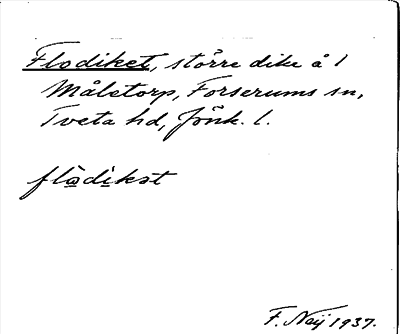 Flodiket, större dike å 1
Målstorp, Forserums sn,
Tveta hd, Jönk. l.
flòdìkət
F. Neij 1937.